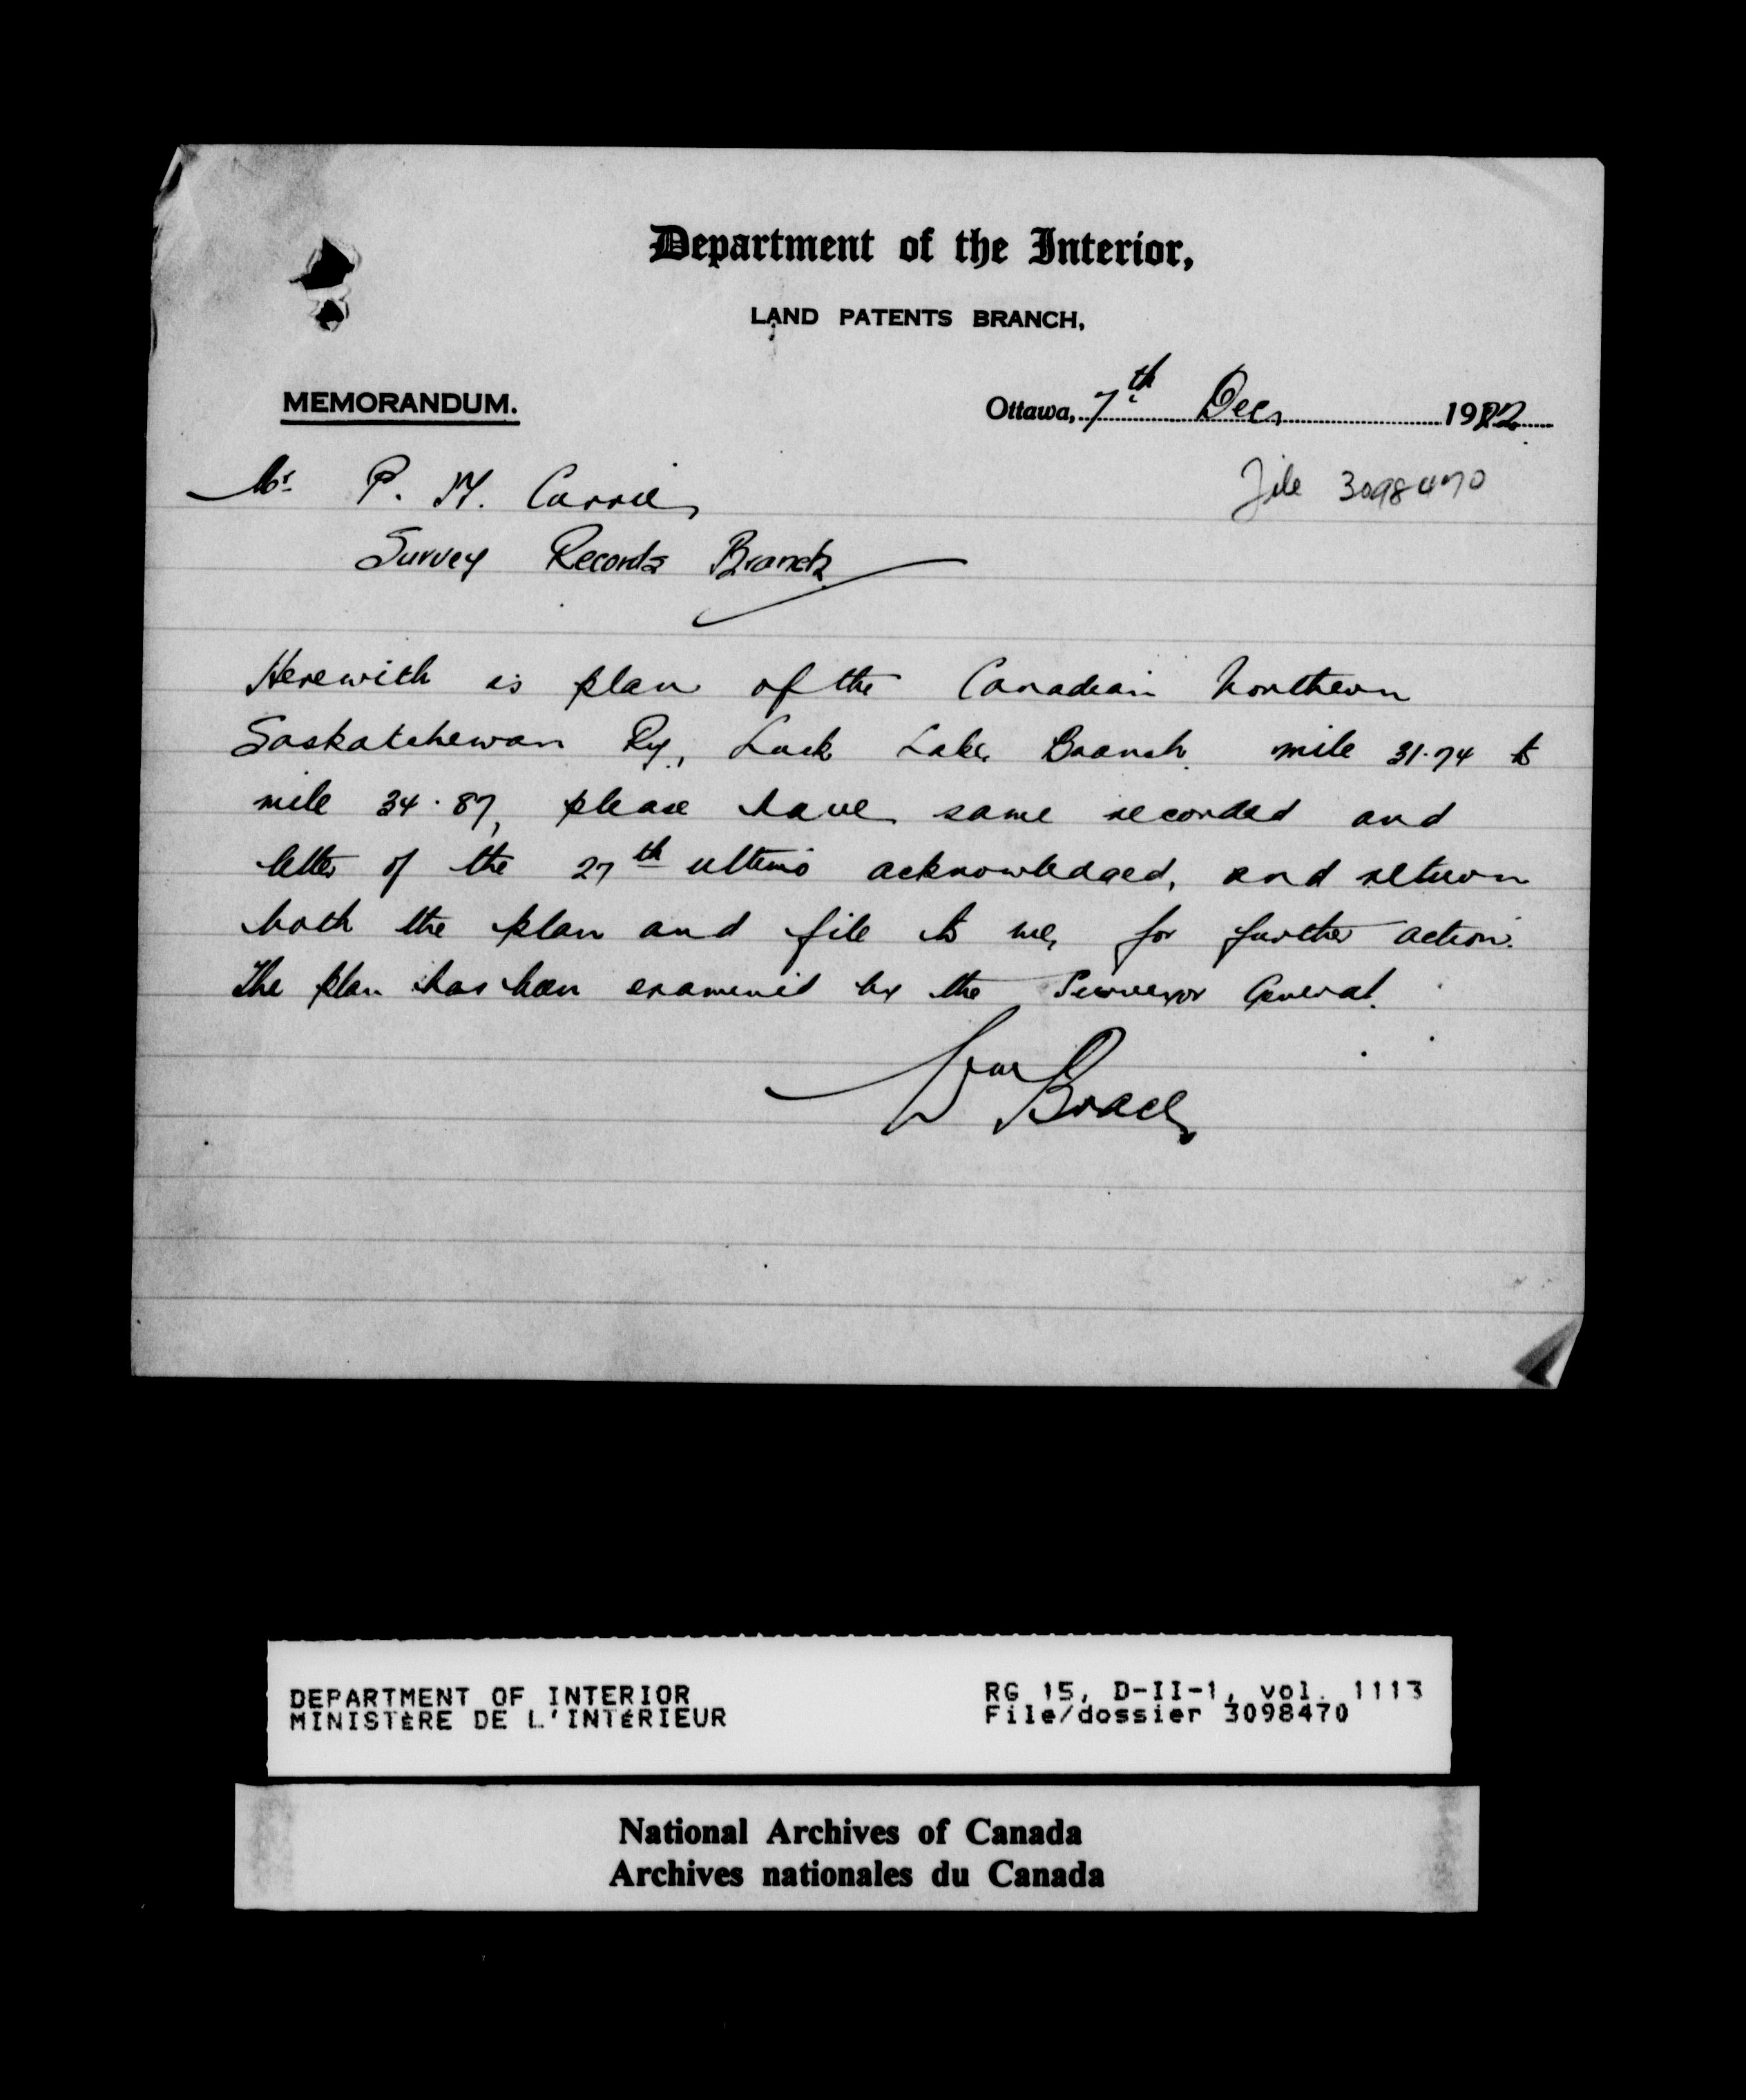 Department of the Interior,
LAND PATENTS BRANCH,
MEMORANDUM.
Ottawa, 7th Dec, 1922
File 3098470
Mr. P. M. Currie,
Survey Records Branch
Herewith is plan of the Canadian Northern
Saskatchewan Ry., Luck Lake Branch. mile 31.74 to
mile 34.87, please have same recorded and
letter of the 27th ultimo acknowledged, and return
both the plan and file to me, for further action.
The plan has been examined by the Surveyor General.
Wm
DEPARTMENT OF INTERIOR
MINISTÈRE DE L'INTÉRIEUR
RG 15, D-II-1, vol. 1113
File/dossier 3098470
National Archives of Canada
Archives nationales du Canada